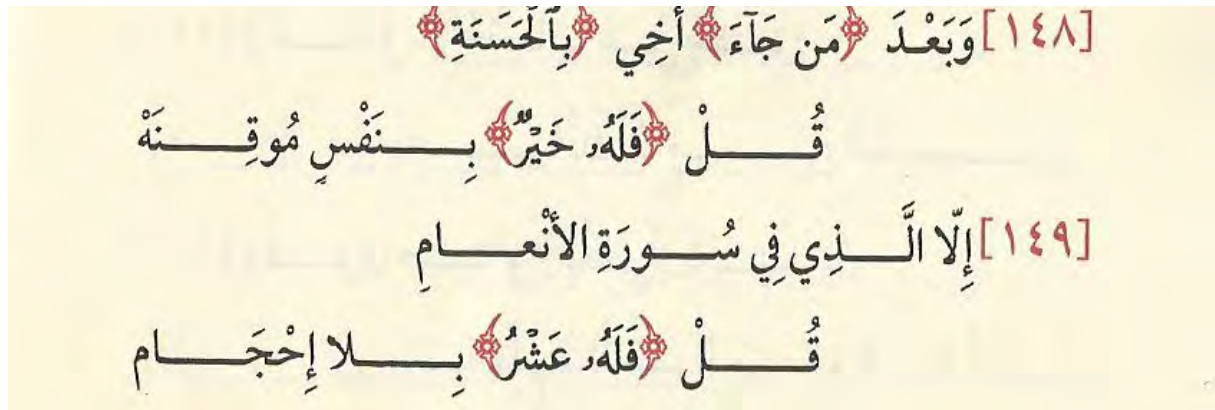 [١٤٨] وَبَعْدَ ﴿مَن جَآءَ﴾ أَخِي ﴿بِٱلْحَسَنَةِ﴾
قُلْ ﴿فَلَهُۥ خَيْرٌ﴾ بِنَفْسٍ مُوقِنَهْ
[١٤٩] إِلّا الَّذِي فِي سُورَةِ الأَنْعامِ
قُلْ ﴿فَلَهُۥ عَشْرُ﴾ بِلا إِحْجَام